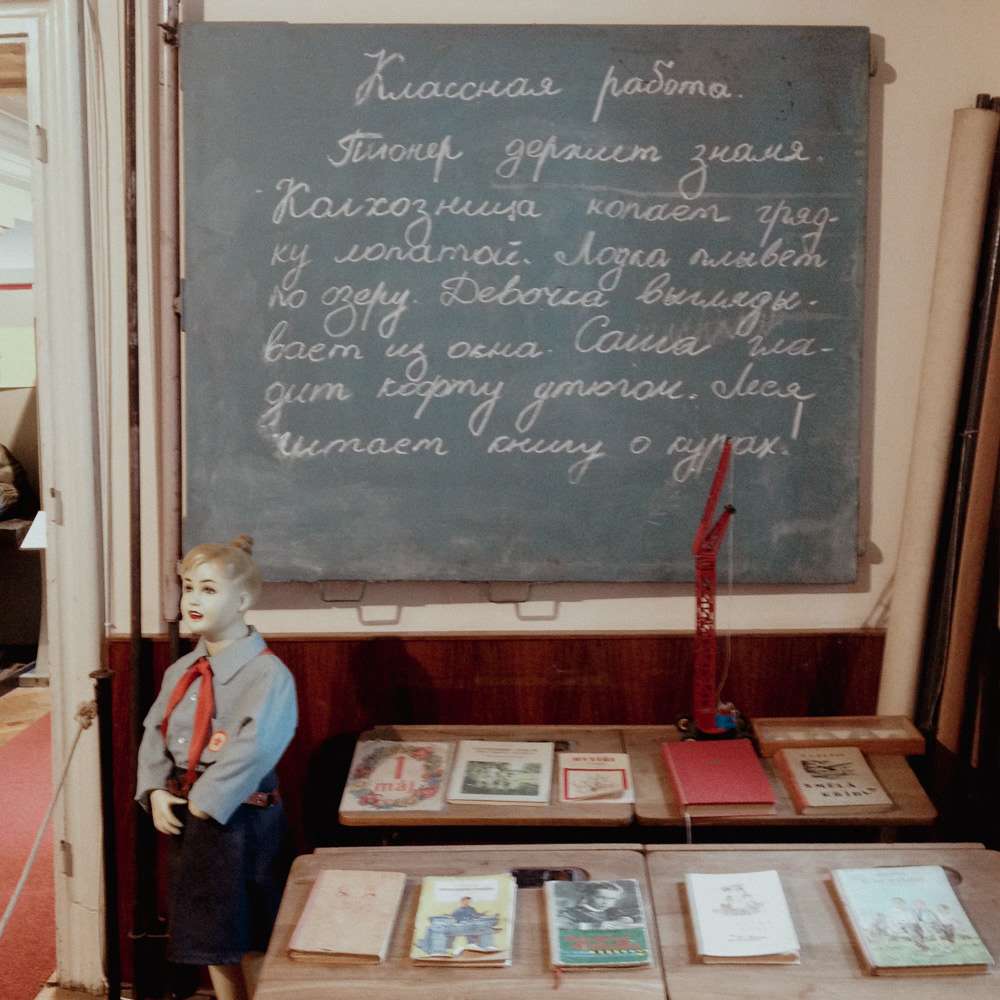 Классная работа.
Пионер держит знамя.
Колхозница копает гряд-
ку лопатой. Лодка плывет
по озеру. Девочка выгляды-
вает из окна. Саша гла-
дит кофту утюгом. Леся
читает книгу о курах.
1
máj
SMĚLÁ
KŘÍDLA